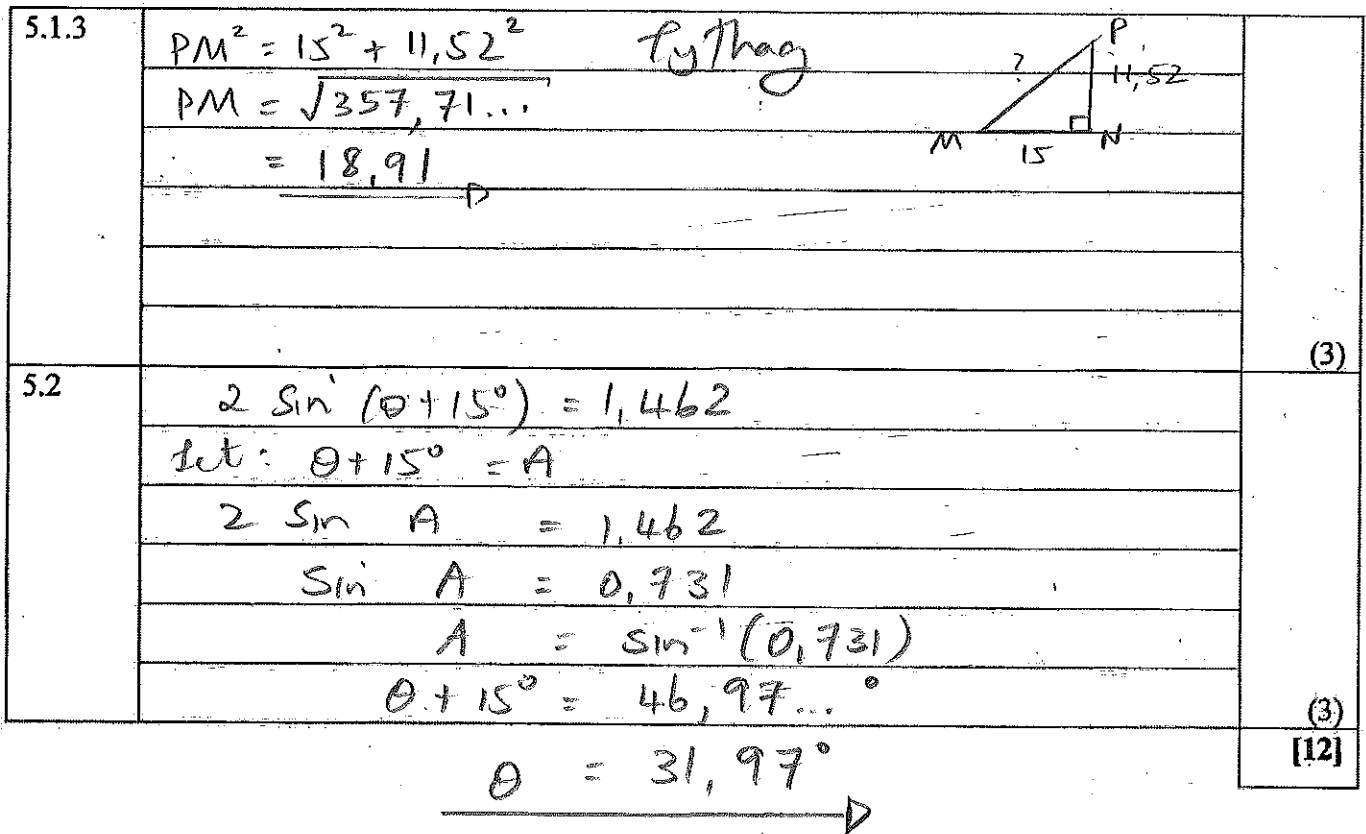 5.1.3
PM² = 15² + 11,52² Pythag
PM = √357,71...
= 18,91
P
?
11,52
M
15
N
(3)
5.2
2 sin (θ + 15°) = 1,462
let: θ + 15° = A
2 sin A = 1,462
sin A = 0,731
A = sin⁻¹ (0,731)
θ + 15° = 46,97...°
(3)
[12]
θ = 31,97°